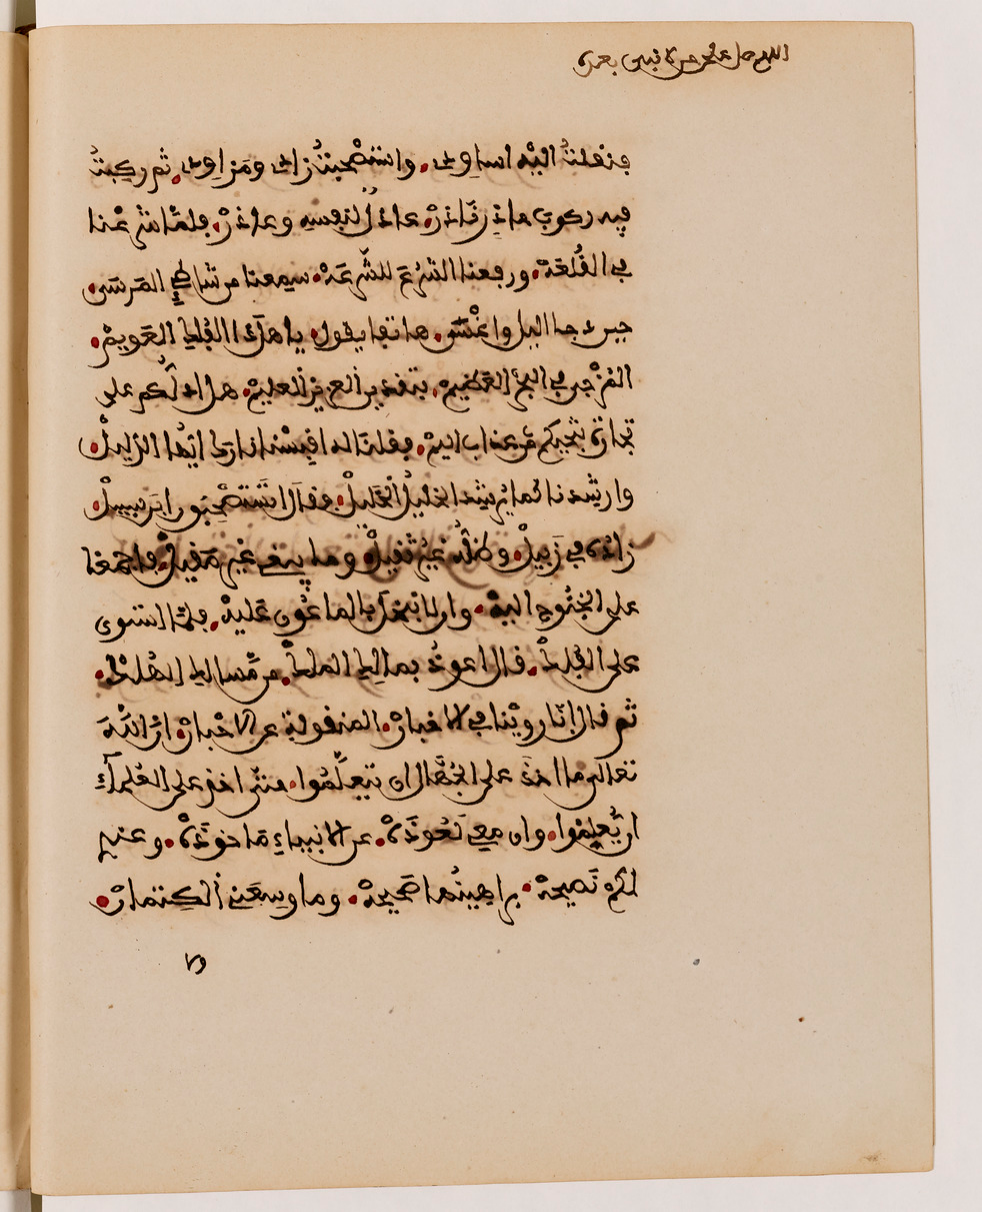 اللهم صل على محمد من لا نبي بعده
فنقلت اليه اساودي. واستصحبت زادي ومزاودي. ثم ركبت
فيه ركوب حاذر ناذر. عاذل لنفسه وعاذر. فلما شرعنا
في القلعة. ورفعنا الشرع للسرعة. سمعنا من شاطئ المرسى.
حين دجا اليل واغسى. هاتفا يقول. يا اهل ذا الفلك القويم.
المزجى في البحر العظيم. بتقدير العزيز العليم. هل ادلكم على
تجارة تنجيكم من عذاب اليم. فقلنا له اقبسنا نارك ايها الدليل.
وارشدنا كما يرشد الخليل الخليل. فقال اتستصحبون ابن سبيل.
زاده في زبيل. وظله غير ثقيل. وما يبغي غير مقيل. فاجمعنا
على الجنوح اليه. وان لا نبخل بالماعون عليه. فلما استوى
على الفلك. قال اعوذ بمالك الملك. من مسالك الهلك.
ثم قال انا روينا في الاخبار. المنقولة عن الاحبار. ان الله
تعالى ما اخذ على الجهال ان يتعلموا. حتى اخذ على العلماء
ان يعلموا. وان معي لعوذة. عن الانبياء ماخوذة. وعندي
لكم نصيحة. براهينها صحيحة. وما وسعني الكتمان.
ولا